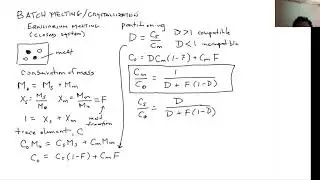 BATCH MELTING/CRYSTALLIZATION
EQUILIBRIUM MELTING
(CLOSED SYSTEM)
melt
Conservation of mass
M₀ = Mₛ + Mₘ
Xₛ = Mₛ/M₀ Xₘ = Mₘ/M₀ = F
melt fraction
1 = Xₛ + Xₘ
trace element, C
C₀M₀ = CₛMₛ + CₘMₘ
C₀ = Cₛ(1-F) + CₘF
partitioning
D = Cₛ/Cₘ D>1 compatible
D<1 incompatible
C₀ = DCₘ(1-F) + CₘF
Cₘ/C₀ = 1/(D + F(1-D))
Cₛ/C₀ = D/(D + F(1-D))